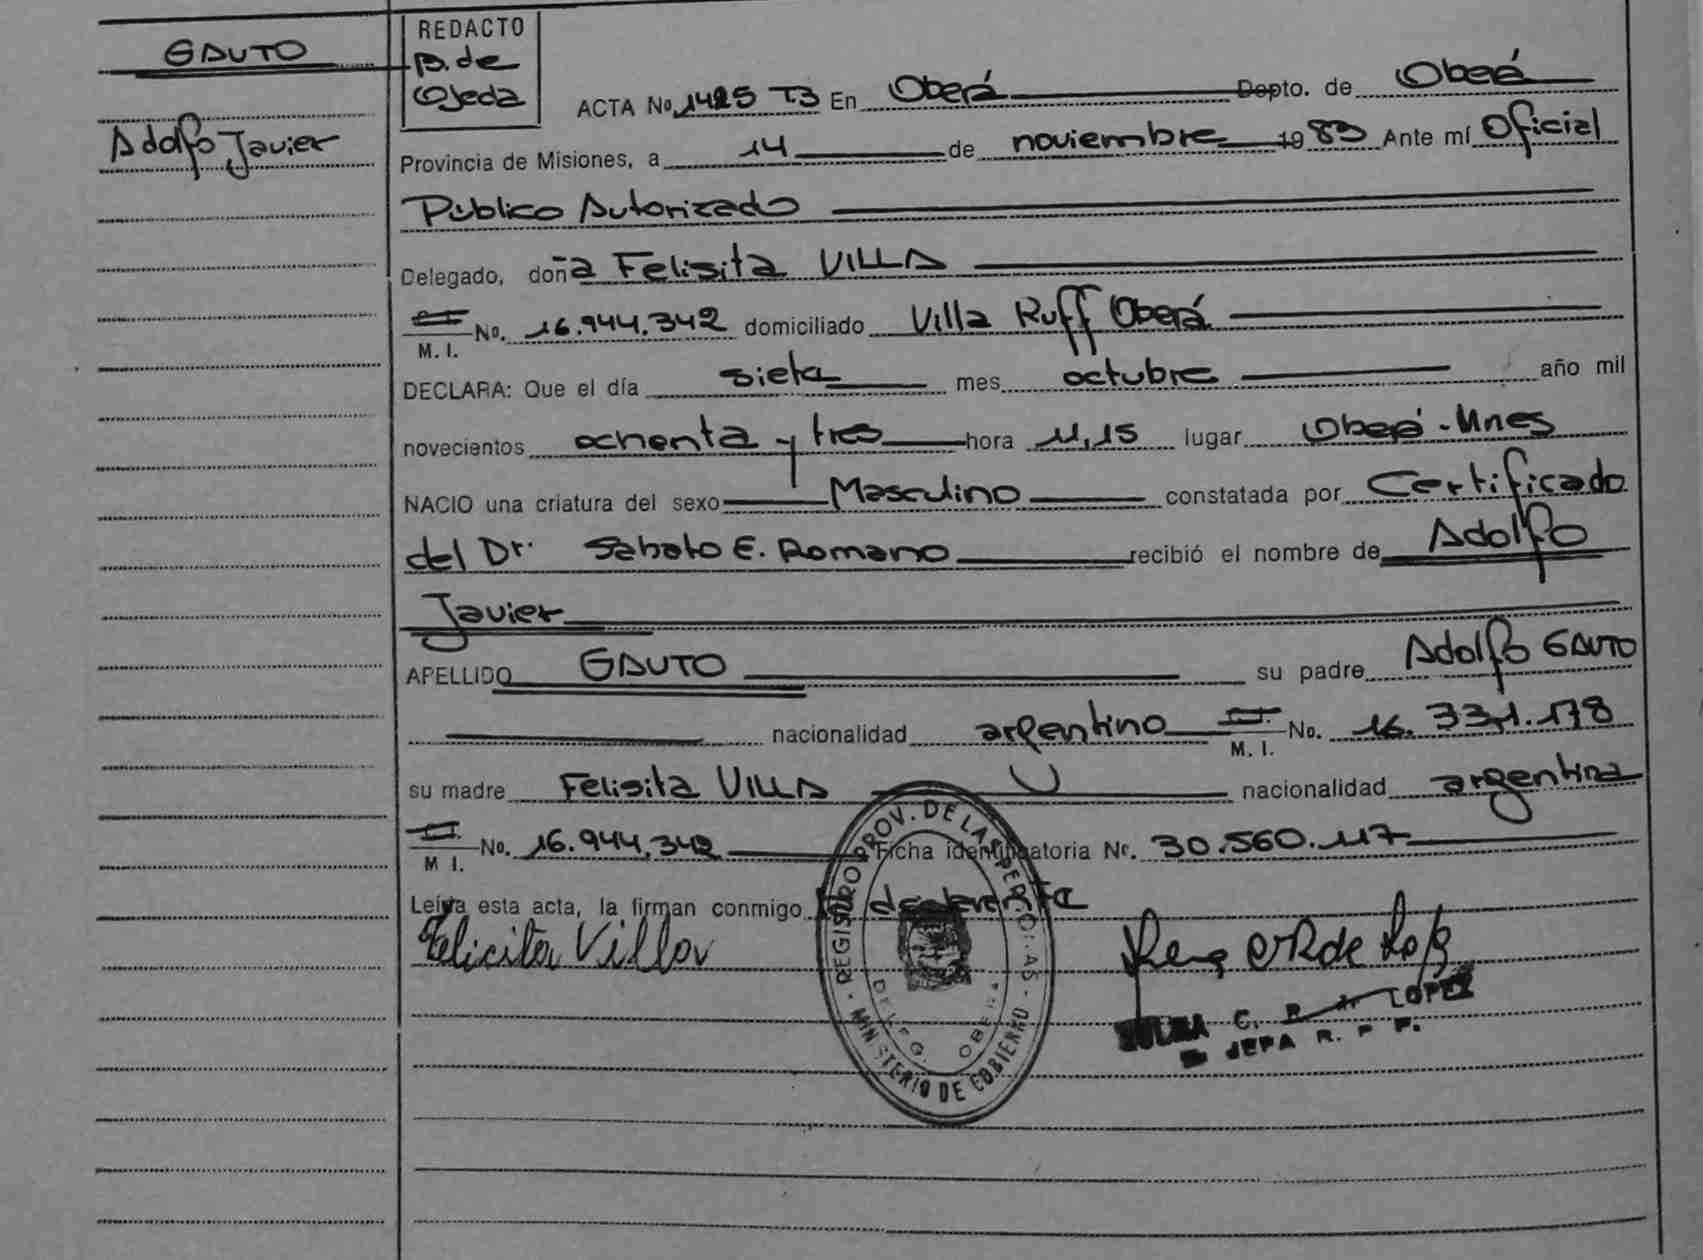 GAUTO
Adolfo Javier
REDACTO
B. de
Ojeda
ACTA No. 1425 T3 En Oberá Depto. de Oberá
Provincia de Misiones, a 14 de noviembre 1983 Ante mí Oficial
Público Autorizado
Delegado, doña Felisita VILLA
M. I. No. 16.944.342 domiciliado Villa Ruff Oberá
DECLARA: Que el día siete mes octubre año mil
novecientos ochenta y tres hora 11,15 lugar Oberá - Mnes
NACIO una criatura del sexo Masculino constatada por Certificado
del Dr. Sabato E. Romano recibió el nombre de Adolfo
Javier
APELLIDO GAUTO su padre Adolfo GAUTO
nacionalidad argentino M. I. No. 16.331.178
su madre Felisita VILLA nacionalidad argentina
M I. No. 16.944.342 Ficha identificatoria Nr. 30.560.117
Leída esta acta, la firman conmigo la declarante
Felicita Villa
C. R. de LOPEZ
JEFA R. P. P.
REGISTRO PROV. DE LAS PERSONAS - MINISTERIO DE GOBIERNO
DELEG. OBERA